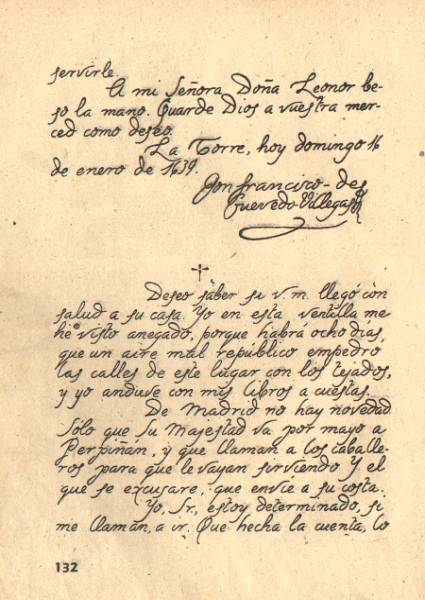 servirle.
A mi Señora Doña Leonor be-
so la mano. Guarde Dios a vuestra mer-
ced como deseo.
La Torre, hoy domingo 16
de enero de 1639.
Don francisco de
Quevedo Villegas
†
Deseo saber si v. m. llegó con
salud a su casa. Yo en esta ventilla me
he visto anegado, porque habrá ocho días,
que un aire mal repúblico empedró
las calles de este lugar con los tejados,
y yo anduve con mis libros a cuestas.
De Madrid no hay novedad
Sólo que Su Majestad va por mayo a
Perpiñán, y que llaman a los caballe-
ros para que le vayan sirviendo y el
que se excusare, que envíe a su costa.
Yo, Sr., estoy determinado, si
me llaman, a ir. Que hecha la cuenta, lo
132